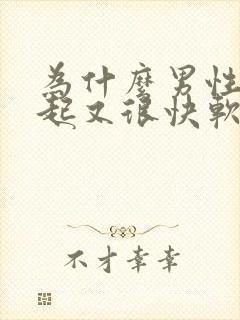 為什麼男性
起又很快軟
不才幸幸